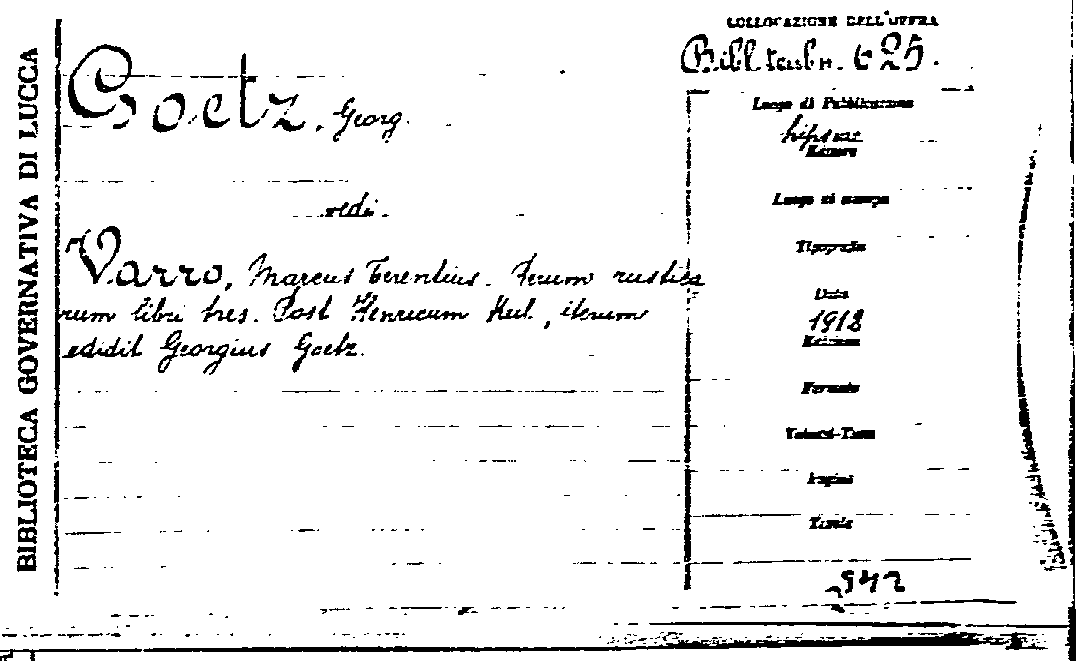 BIBLIOTECA GOVERNATIVA DI LUCCA
COLLOCAZIONE DELL'OPERA
Bibl. 625.
Goetz, Georg.
vedi.
Varro, Marcus Terentius. Rerum rustica
rum libri tres. Post Henricum Keil, iterum
edidit Georgius Goetz.
Luogo di Pubblicazione
Lipsiae
Editore
Luogo di stampa
Tipografia
Data
1912
Edizione
Formato
Volumi-Tomi
Pagine
Tavole
942